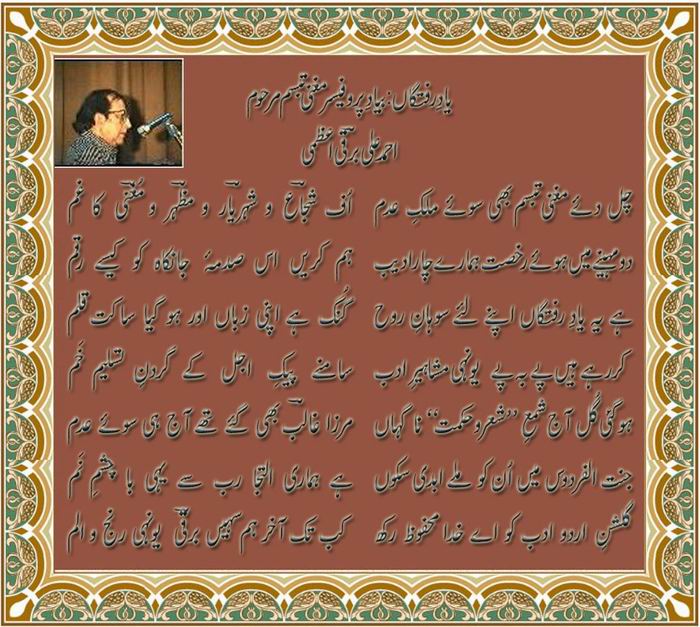 یادِ رفتگاں : بیاد پروفیسر مغنی تبسم مرحوم
احمد علی برقی اعظمی
چل دئے مغنی تبسم بھی سوئے ملکِ عدم اُف شجاع و شہریار و مظہر و مُغنی کا غم
دو مہینے میں ہوئے رخصت ہمارے چار ادیب ہم کریں اس صدمۂ جانکاہ کو کیسے رقم
ہے یہ یادِ رفتگاں اپنے لئے سوہانِ روح گُنگ ہے اپنی زباں اور ہو گیا ساکت قلم
کر رہے ہیں پے بہ پے یونہی مشاہیرِ ادب سامنے پیکِ اجل کے گردنِ تسلیم خم
ہو گئی گُل آج شمعِ ”شعر و حکمت“ نا گہاں مرزا غالب بھی گئے تھے آج ہی سوئے عدم
جنت الفردوس میں اُن کو ملے ابدی سکوں ہے ہماری التجا رب سے یہی با چشمِ نم
گلشنِ اردو ادب کو اے خدا محفوظ رکھ کب تک آخر ہم سہیں برقی یونہی رنج و الم